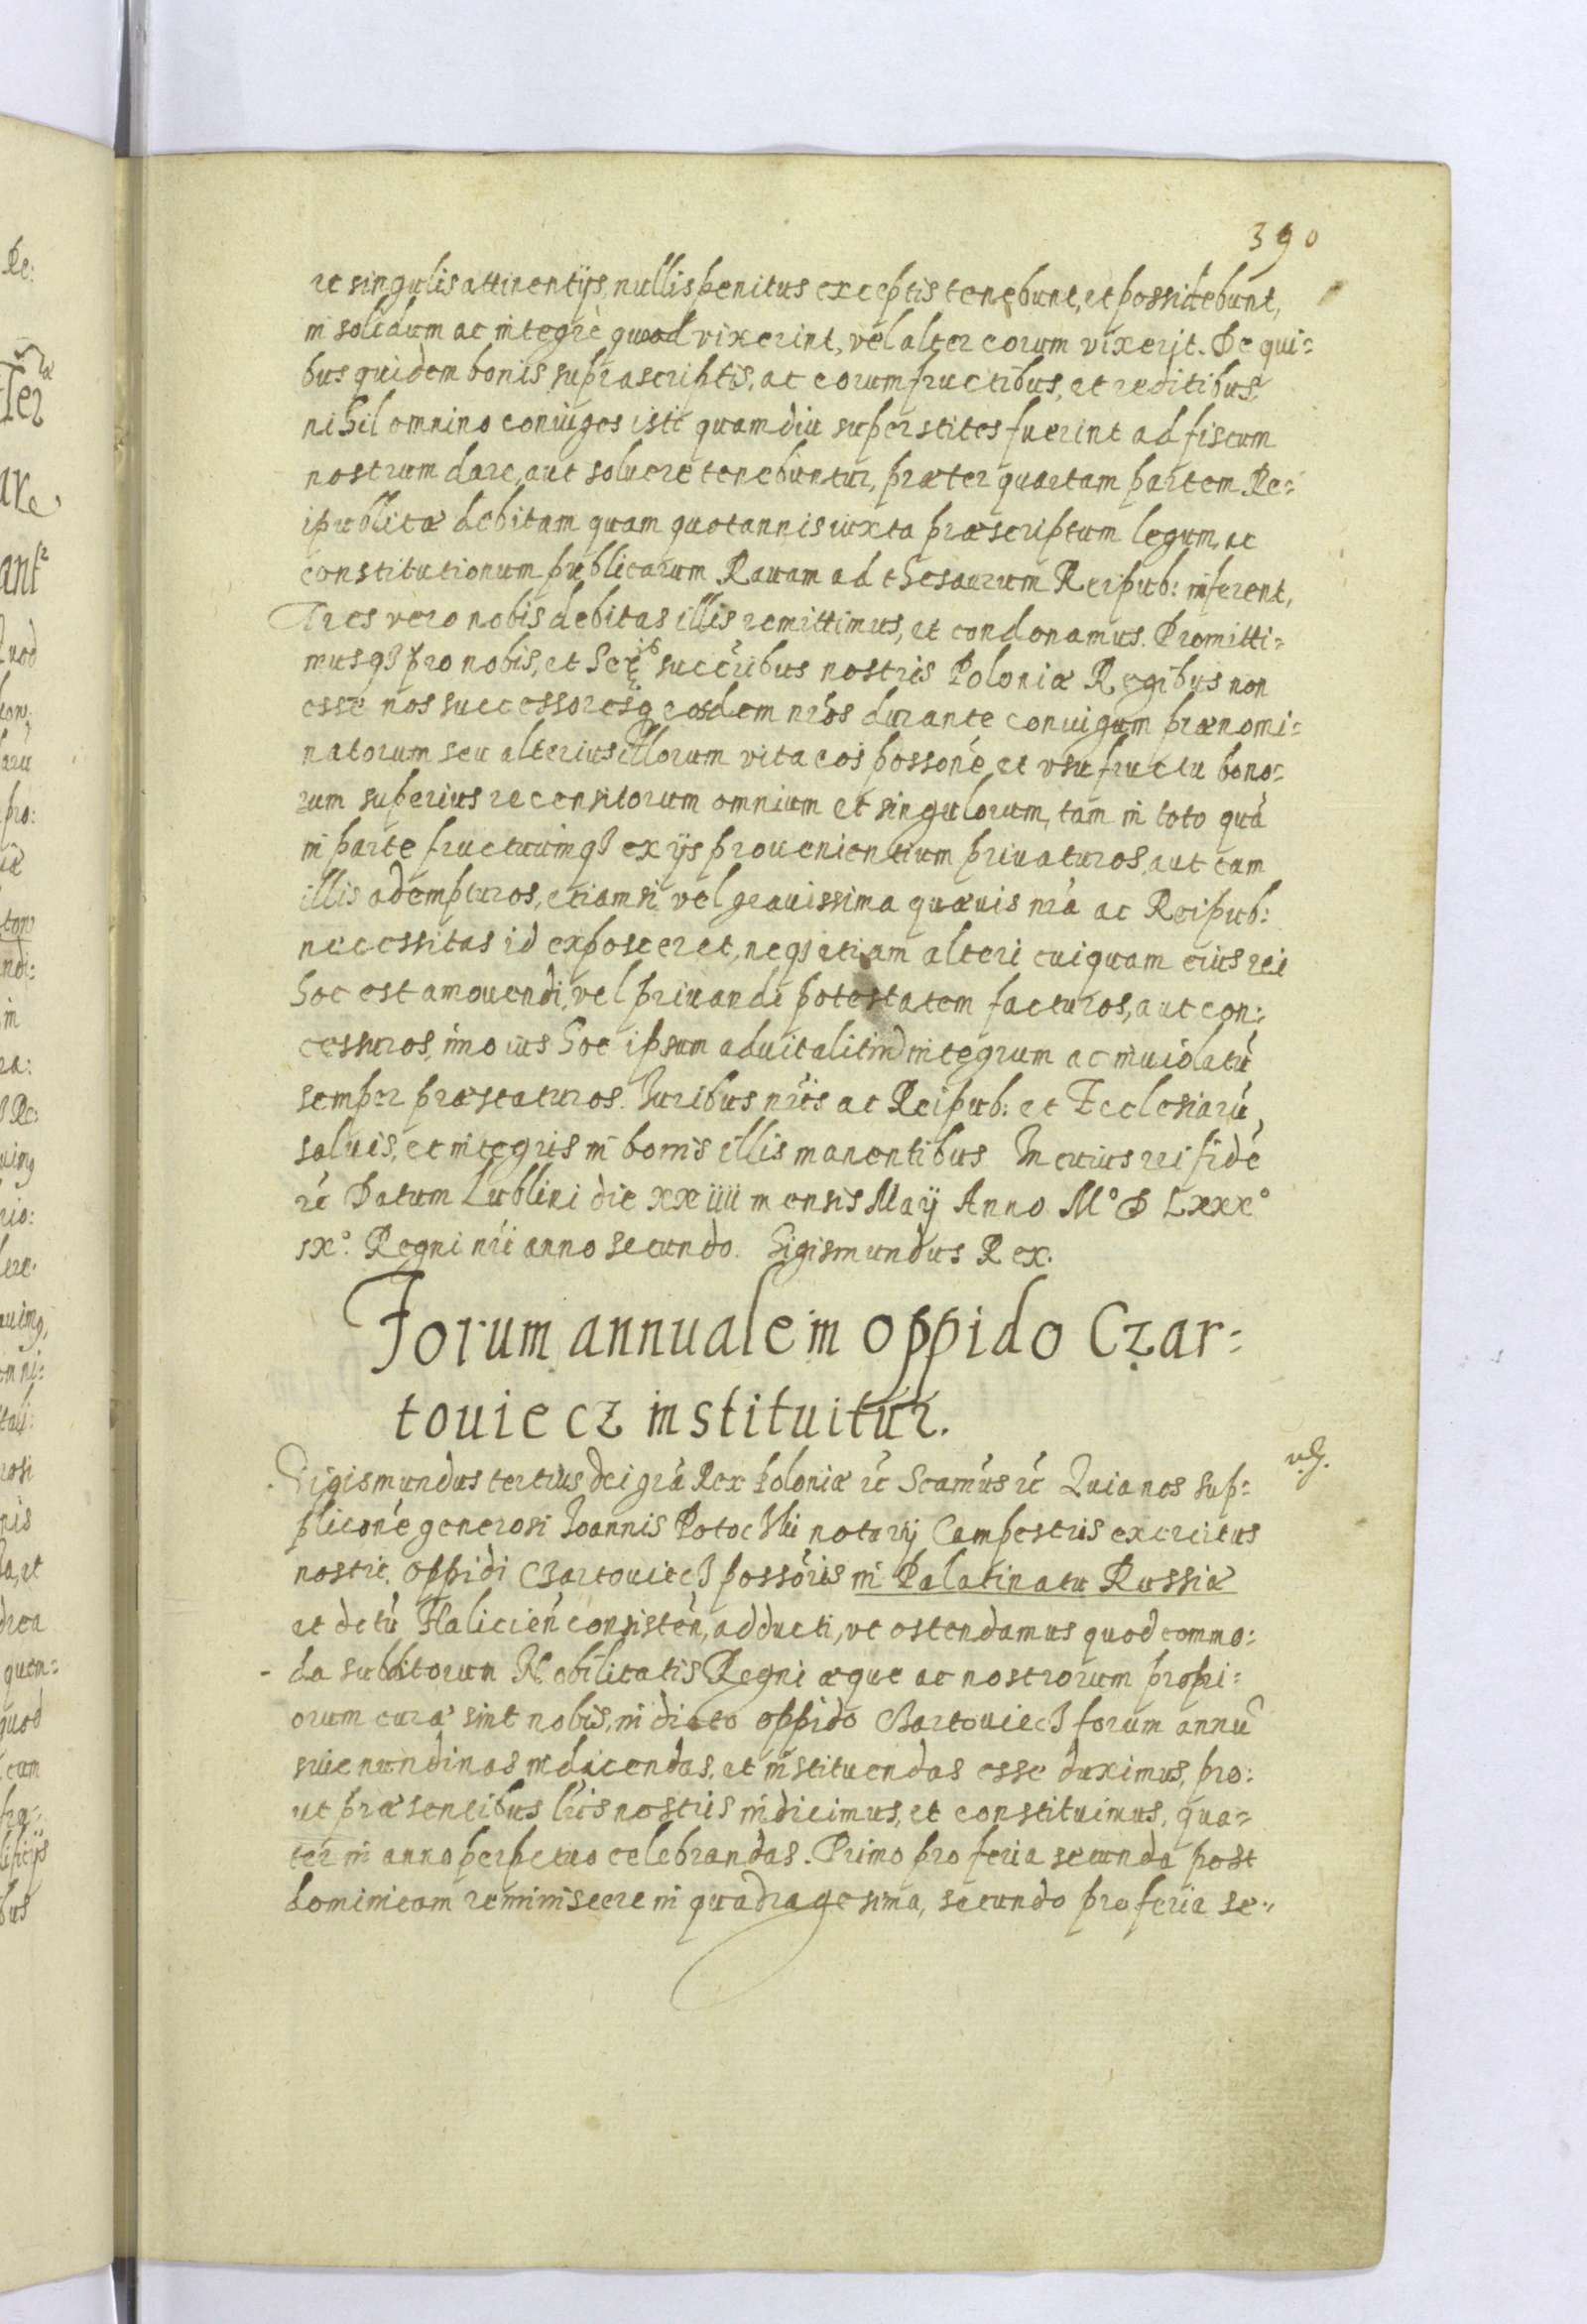 390
et singulis attinentijs, nullis penitus exceptis tenebunt, et possidebunt,
in solidum ac integrè quoad vixerint, vel alter eorum vixerit. De qui=
bus quidem bonis suprascriptis, ac eorum fructibus, et reditibus
nihil omnino coniuges isti quamdiu superstites fuerint ad fiscum
nostrum dare, aut soluere tenebuntur, præter quartam partem Re=
ipublicæ debitam quam quotannis iuxta præscriptum legum, ac
constitutionum publicarum Rauam ad thesaurum Reipub: inferent,
Tres vero nobis debitas illis remittimus, et condonamus. Promitti=
musq3 pro nobis, et Ser succribus nostris Poloniæ Regibus non
esse nos successoresq eosdem nros durante coniugum prænomi=
natorum seu alterius illorum vita eos possone et vsufructu bono=
rum superius recensitorum omnium et singulorum, tam in toto quá
in parte fructuumq3 ex ijs prouenientium priuaturos, aut eam
illis adempturos, etiamsi vel grauissima quæuis nra ac Reipub:
necessitas id exposceret, neq3 etiam alteri cuiquam eius rei
hoc est amouendi, vel priuandi potestatem facturos, aut con=
cessuros, imo ius hoc ipsum aduitalitium integrum ac inuiolatū
semper præstaturos. Iuribus nris ac Reipub: et Ecclesiarū
saluis, et integris in bonis illis manentibus In cuius rei fidē
rc Datum Lublini die xxiiii mensis Maij Anno M° D Lxxx°
ix°. Regni nri anno secundo. Sigismundus Rex.
Forum annuale in oppido Czar=
touiecz instituitur.
Sigismundus tertius dei gra Rex Poloniæ rc Scamus rc Quia nos sup=
plicone generosi Ioannis Potocski notarij Campestris exercitus
nostri, oppidi Czartouiecz possoris in Palatinatu Russiæ
et dctu Halicien consisten, adducti, vt ostendamus quod commo=
da subditorum Nobilitatis Regni æque ac nostrorum propri=
orum curæ sint nobis, in dicto oppido Czartouiecz forum annū
siue nundinas indicendas, et instituendas esse duximus, pro=
ut præsentibus lris nostris indicimus, et constituimus, qua=
ter in anno perpetuo celebrandas. Primo pro feria secunda post
dominicam reminiscere in quadragesima, secundo pro feria se=